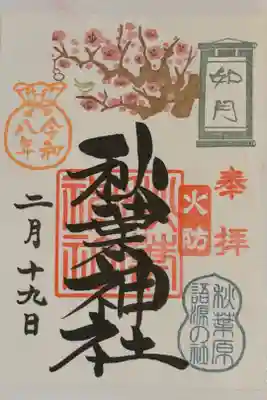 如月
奉拝
火防
秋葉神社
秋葉神社
秋葉原
語源の社
令和
八年
二月十九日